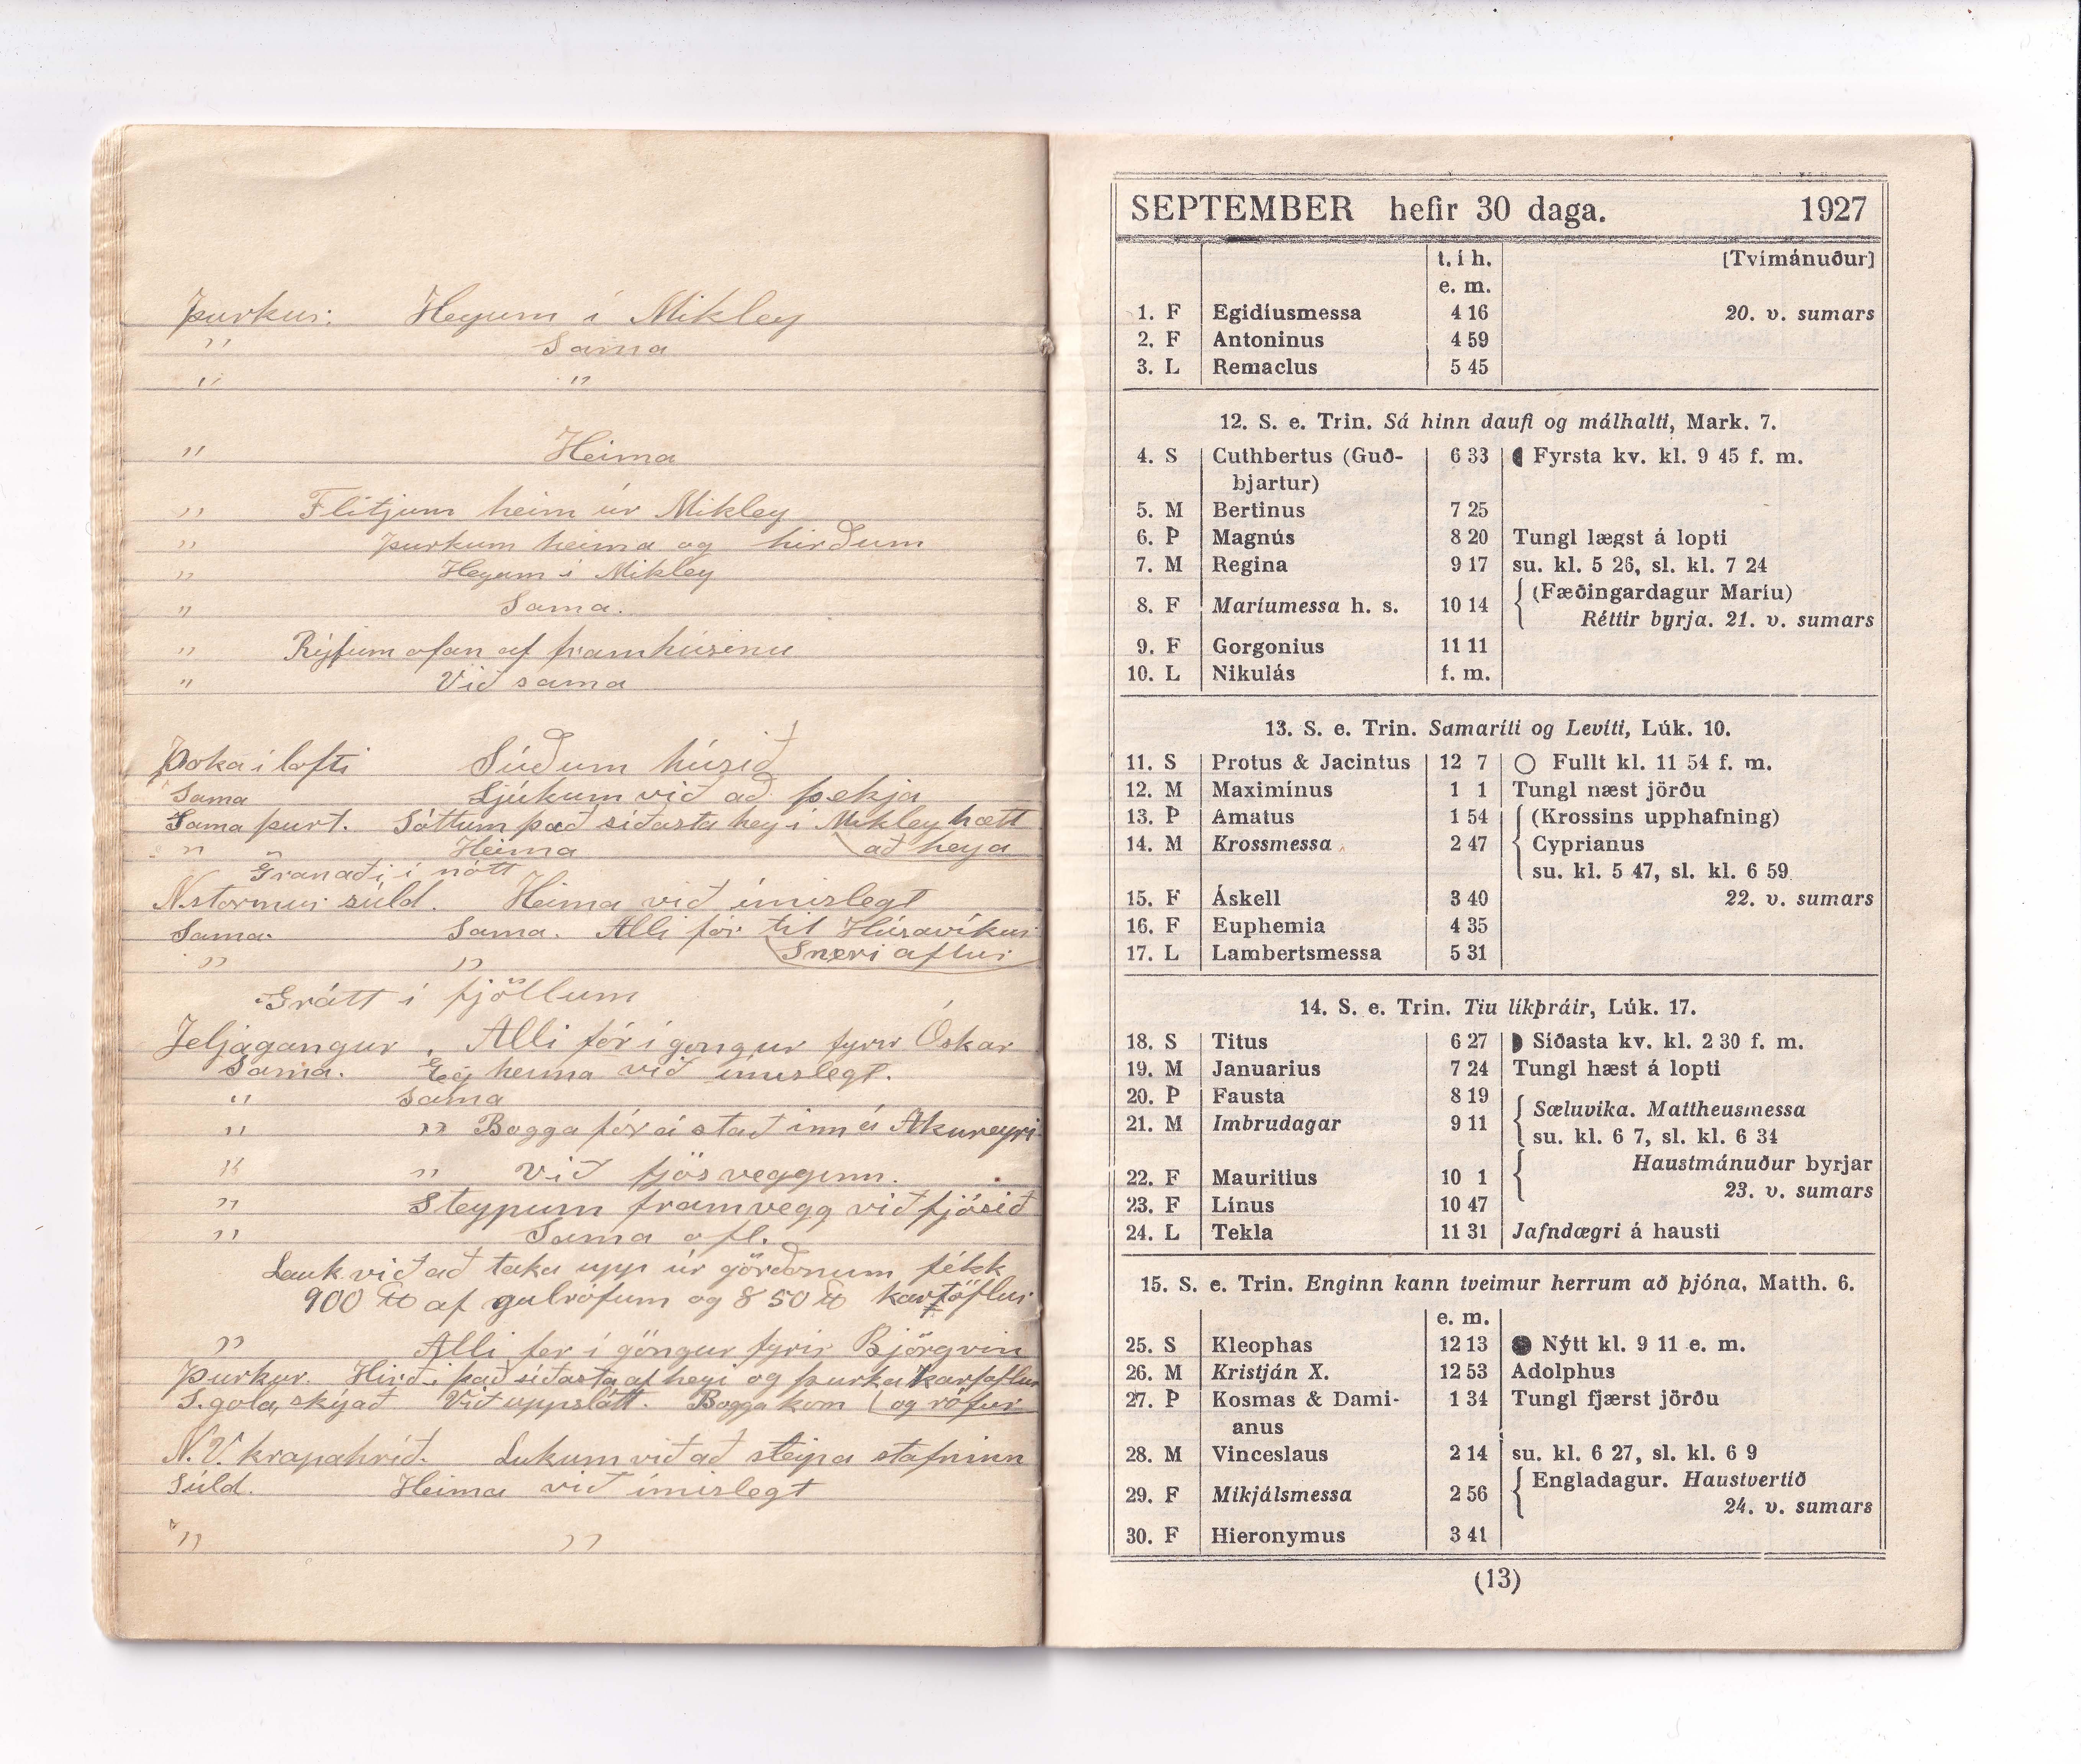 Þurkur: Heyum í Mikley
" Sama
" "
" Heima
" Flitjum heim úr Mikley
" Þurkum heima og hirðum
" Heyum í Mikley
" Sama.
" Rífum ofan af framhúsinu
" Við sama
Þoka í lofti Súðum húsið
Sama Ljúkum við að þekja
Sama þurt. Sóttum það síðasta hey í Mikley hætt
" Heima (að heya
Gránaði í nótt
N.stormur súld. Heima við ímislegt
Sama. Sama. Alli fór til Húsavíkur
" " (Sneri aftur
Grátt í fjöllum
Jeljagangur. Alli fór í göngur fyrir Óskar
Sama. Eg heima við ímislegt.
" Sama
" " Bogga fór á stað inn á Akureyri
" " við fjósvegginn.
" Steypum framvegg við fjósið
" Sama o fl.
Lauk við að taka upp úr görðonum fékk
900 ℔ af gulrófum og 850 ℔ kartöflur
" Alli fer í göngur fyrir Björgvin
Þurkur. Hirði það síðasta af heyi og þurka kartaflur
S.gola, skýað Við uppslátt. Bogga kom (og rófur
N.V. krapahríð. Lukum við að steipa stafninn
Súld. Heima við ímislegt
" "
SEPTEMBER hefir 30 daga. 1927
t. í h. [Tvímánuður]
e. m.
1. F Egidíusmessa 4 16 20. v. sumars
2. F Antoninus 4 59
3. L Remaclus 5 45
12. S. e. Trin. Sá hinn daufi og málhalti, Mark. 7.
4. S Cuthbertus (Guð- 6 33 Fyrsta kv. kl. 9 45 f. m.
bjartur)
5. M Bertinus 7 25
6. Þ Magnús 8 20 Tungl lægst á lopti
7. M Regina 9 17 su. kl. 5 26, sl. kl. 7 24
8. F Maríumessa h. s. 10 14 { (Fæðingardagur Maríu)
Réttir byrja. 21. v. sumars
9. F Gorgonius 11 11
10. L Nikulás f. m.
13. S. e. Trin. Samaríti og Levíti, Lúk. 10.
11. S Protus & Jacintus 12 7 Fullt kl. 11 54 f. m.
12. M Maximínus 1 1 Tungl næst jörðu
13. Þ Amatus 1 54 { (Krossins upphafning)
14. M Krossmessa 2 47 Cyprianus
su. kl. 5 47, sl. kl. 6 59
15. F Áskell 3 40 22. v. sumars
16. F Euphemia 4 35
17. L Lambertsmessa 5 31
14. S. e. Trin. Tíu líkþráir, Lúk. 17.
18. S Titus 6 27 Síðasta kv. kl. 2 30 f. m.
19. M Januarius 7 24 Tungl hæst á lopti
20. Þ Fausta 8 19 { Sæluvika. Mattheusmessa
21. M Imbrudagar 9 11 su. kl. 6 7, sl. kl. 6 34
22. F Mauritius 10 1 { Haustmánuður byrjar
23. v. sumars
23. F Línus 10 47
24. L Tekla 11 31 Jafndægri á hausti
15. S. e. Trin. Enginn kann tveimur herrum að þjóna, Matth. 6.
e. m.
25. S Kleophas 12 13 Nýtt kl. 9 11 e. m.
26. M Kristján X. 12 53 Adolphus
27. Þ Kosmas & Dami- 1 34 Tungl fjærst jörðu
anus
28. M Vinceslaus 2 14 su. kl. 6 27, sl. kl. 6 9
29. F Mikjálsmessa 2 56 { Engladagur. Haustvertíð
24. v. sumars
30. F Hieronymus 3 41
(13)